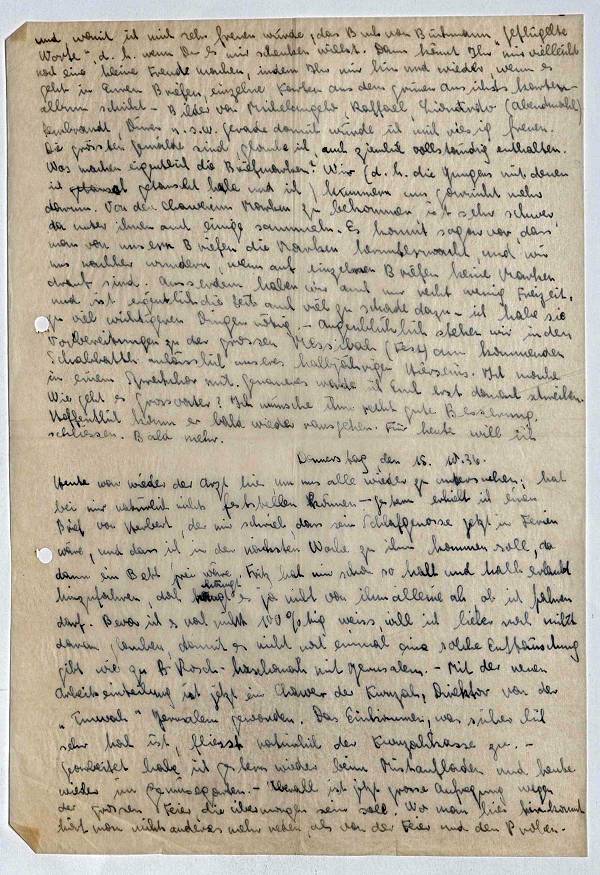 und womit ich mich sehr freuen würde, das Buch von Büchmann "Geflügelte
Worte", d. h. wenn Du es mir schenken willst. Dann könnt Ihr mir vielleicht
noch eine kleine Freude machen, indem Ihr mir hin und wieder, wenn es
geht in Euren Briefen, einzelne Karten aus dem grünen Ansichtskarten-
album schickt - Bilder von Michelangelo, Raffael, Lionardo (Abendmahl)
Rembrandt, Dürer u.s.w. gerade damit würde ich mich riesig freuen.
Die grössten Gemälde sind glaube ich, auch ziemlich vollständig enthalten.
Was machen eigentlich die Briefmarken? Wir (d. h. die Jungens mit denen
ich getauscht habe und ich) kümmern uns garnicht mehr
darum. Von den Chawerim Marken zu bekommen, ist sehr schwer
da unter ihnen auch einige sammeln. Es kommt sogar vor, dass
man von unsern Briefen die Marken herunter macht, und wir
uns nachher wundern, wenn auf einzelnen Briefen keine Marken
drauf sind. Ausserdem haben wir auch nur recht wenig Freizeit,
und ist eigentlich die Zeit auch viel zu schade dazu - ich habe sie
zu viel wichtigeren Dingen nötig. - Augenblicklich stehen wir in den
Vorbereitungen zu der grossen Messibah (Fest) am kommenden
Schabbath anlässlich unseres halbjährigen Hierseins. Ich mache
in einem Sprechchor mit. Genaueres werde ich Euch erst danach schreiben.
Wie geht es Grossvater? Ich wünsche ihm recht gute Besserung.
Hoffentlich kann er bald wieder rausgehen. Für heute will ich
schliessen. Bald mehr.
Donnerstag, den 15. 10. 36.
Heute war wieder der Arzt hier um uns alle wieder zu untersuchen; hat
bei mir natürlich nichts feststellen können - gestern erhielt ich einen
Brief von Herbert, der mir schrieb dass sein Schlafgenosse jetzt in Ferien
wäre, und dass ich in der nächsten Woche zu ihm kommen soll, da
dann ein Bett frei wäre. Fritz hat mir schon so halb und halb erlaubt
hinzufahren, doch hängt es ja nicht von ihm alleine ab ob ich fahren
darf. Bevor ich es noch nicht 100%tig weiss, will ich lieber noch nicht
daran glauben, damit es nicht noch einmal eine solche Enttäuschung
gibt wie zu Rosch-haschanah mit Jerusalem. - Mit der neuen
Arbeitseinteilung ist jetzt ein Chawer der Kwuzah, Direktor von der
" " Jerusalem geworden. Das Einkommen, was sicherlich
sehr hoch ist, fliesst natürlich der Kwuzahkasse zu. -
Gearbeitet habe ich gestern wieder beim Mistaufladen und heute
wieder im Gemüsegarten. - Überall ist jetzt grosse Aufregung wegen
der grossen Feier die übermorgen sein soll. Wo man hier hinkommt
hört man nichts anderes mehr reden, als von der Feier und den Proben.